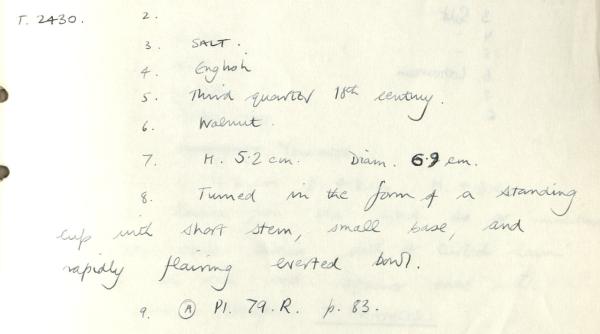 T. 2430. 2.
3. SALT.
4. English
5. Third quarter 18th century.
6. Walnut.
7. H. 5.2 cm. Diam. 6.9 cm.
8. Turned in the form of a standing
cup with short stem, small base, and
rapidly flairing everted bowl.
9. Ⓐ Pl. 79. R. p. 83.